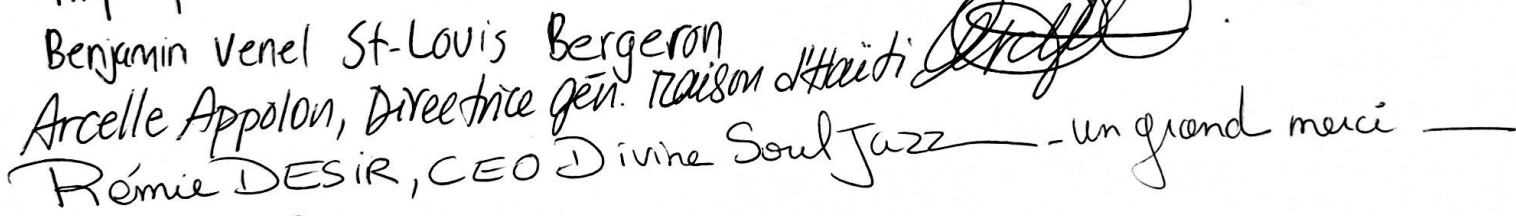 Benjamin Venel St-Louis Bergeron
Arcelle Appolon, Directrice gén. Maison d'Haïti
Rémie DESIR, CEO Divine Soul Jazz - un grand merci